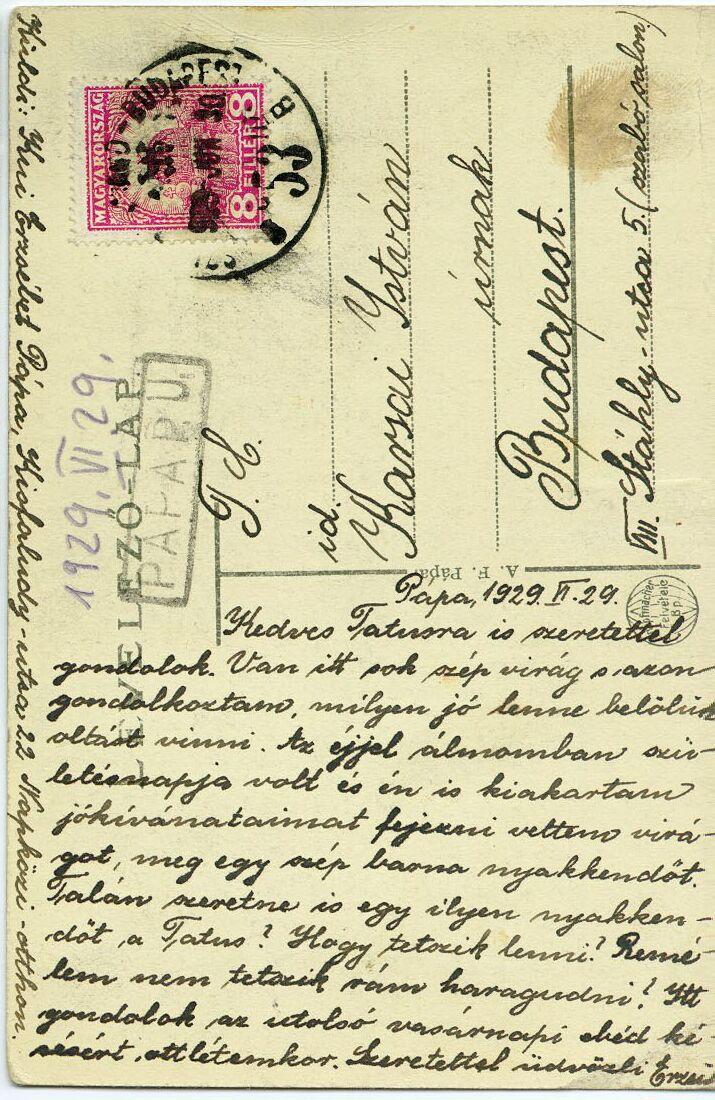 Küldi: Kui Erzsébet Pápa, Kisfaludy-utsa 22 Napközi-otthon.
MAGYARORSZÁG
8 FILLÉR 8
BUDAPEST
53
1929. VI 29.
LEVELEZŐ-LAP.
PÁPARU
T. C.
id.
Karsai Ystván
úrnak
Budapest.
VIII. Stáhly-utsa 5. (szabó salon.)
A. F. Pápa.
Felvétele
Bp.
Pápa, 1929. VI. 29.
Kedves Tatusra is szeretettel
gondolok. Van itt sok szép virág s azon
gondolkoztam, milyen jó lenne belőlük
oltást vinni. Az éjjel álmomban szü-
letésnapja volt és én is kiakartam
jókívánataimat fejezni vettem virá-
got, meg egy szép barna nyakkendőt.
Talán szeretne is egy ilyen nyakken-
dőt a Tatus? Hogy tetszik lenni? Remé-
lem nem tetszik rám haragudni? Itt
gondolok az utolsó vasárnapi ebéd ké-
séséért, ottlétemkor. Szeretettel üdvözli